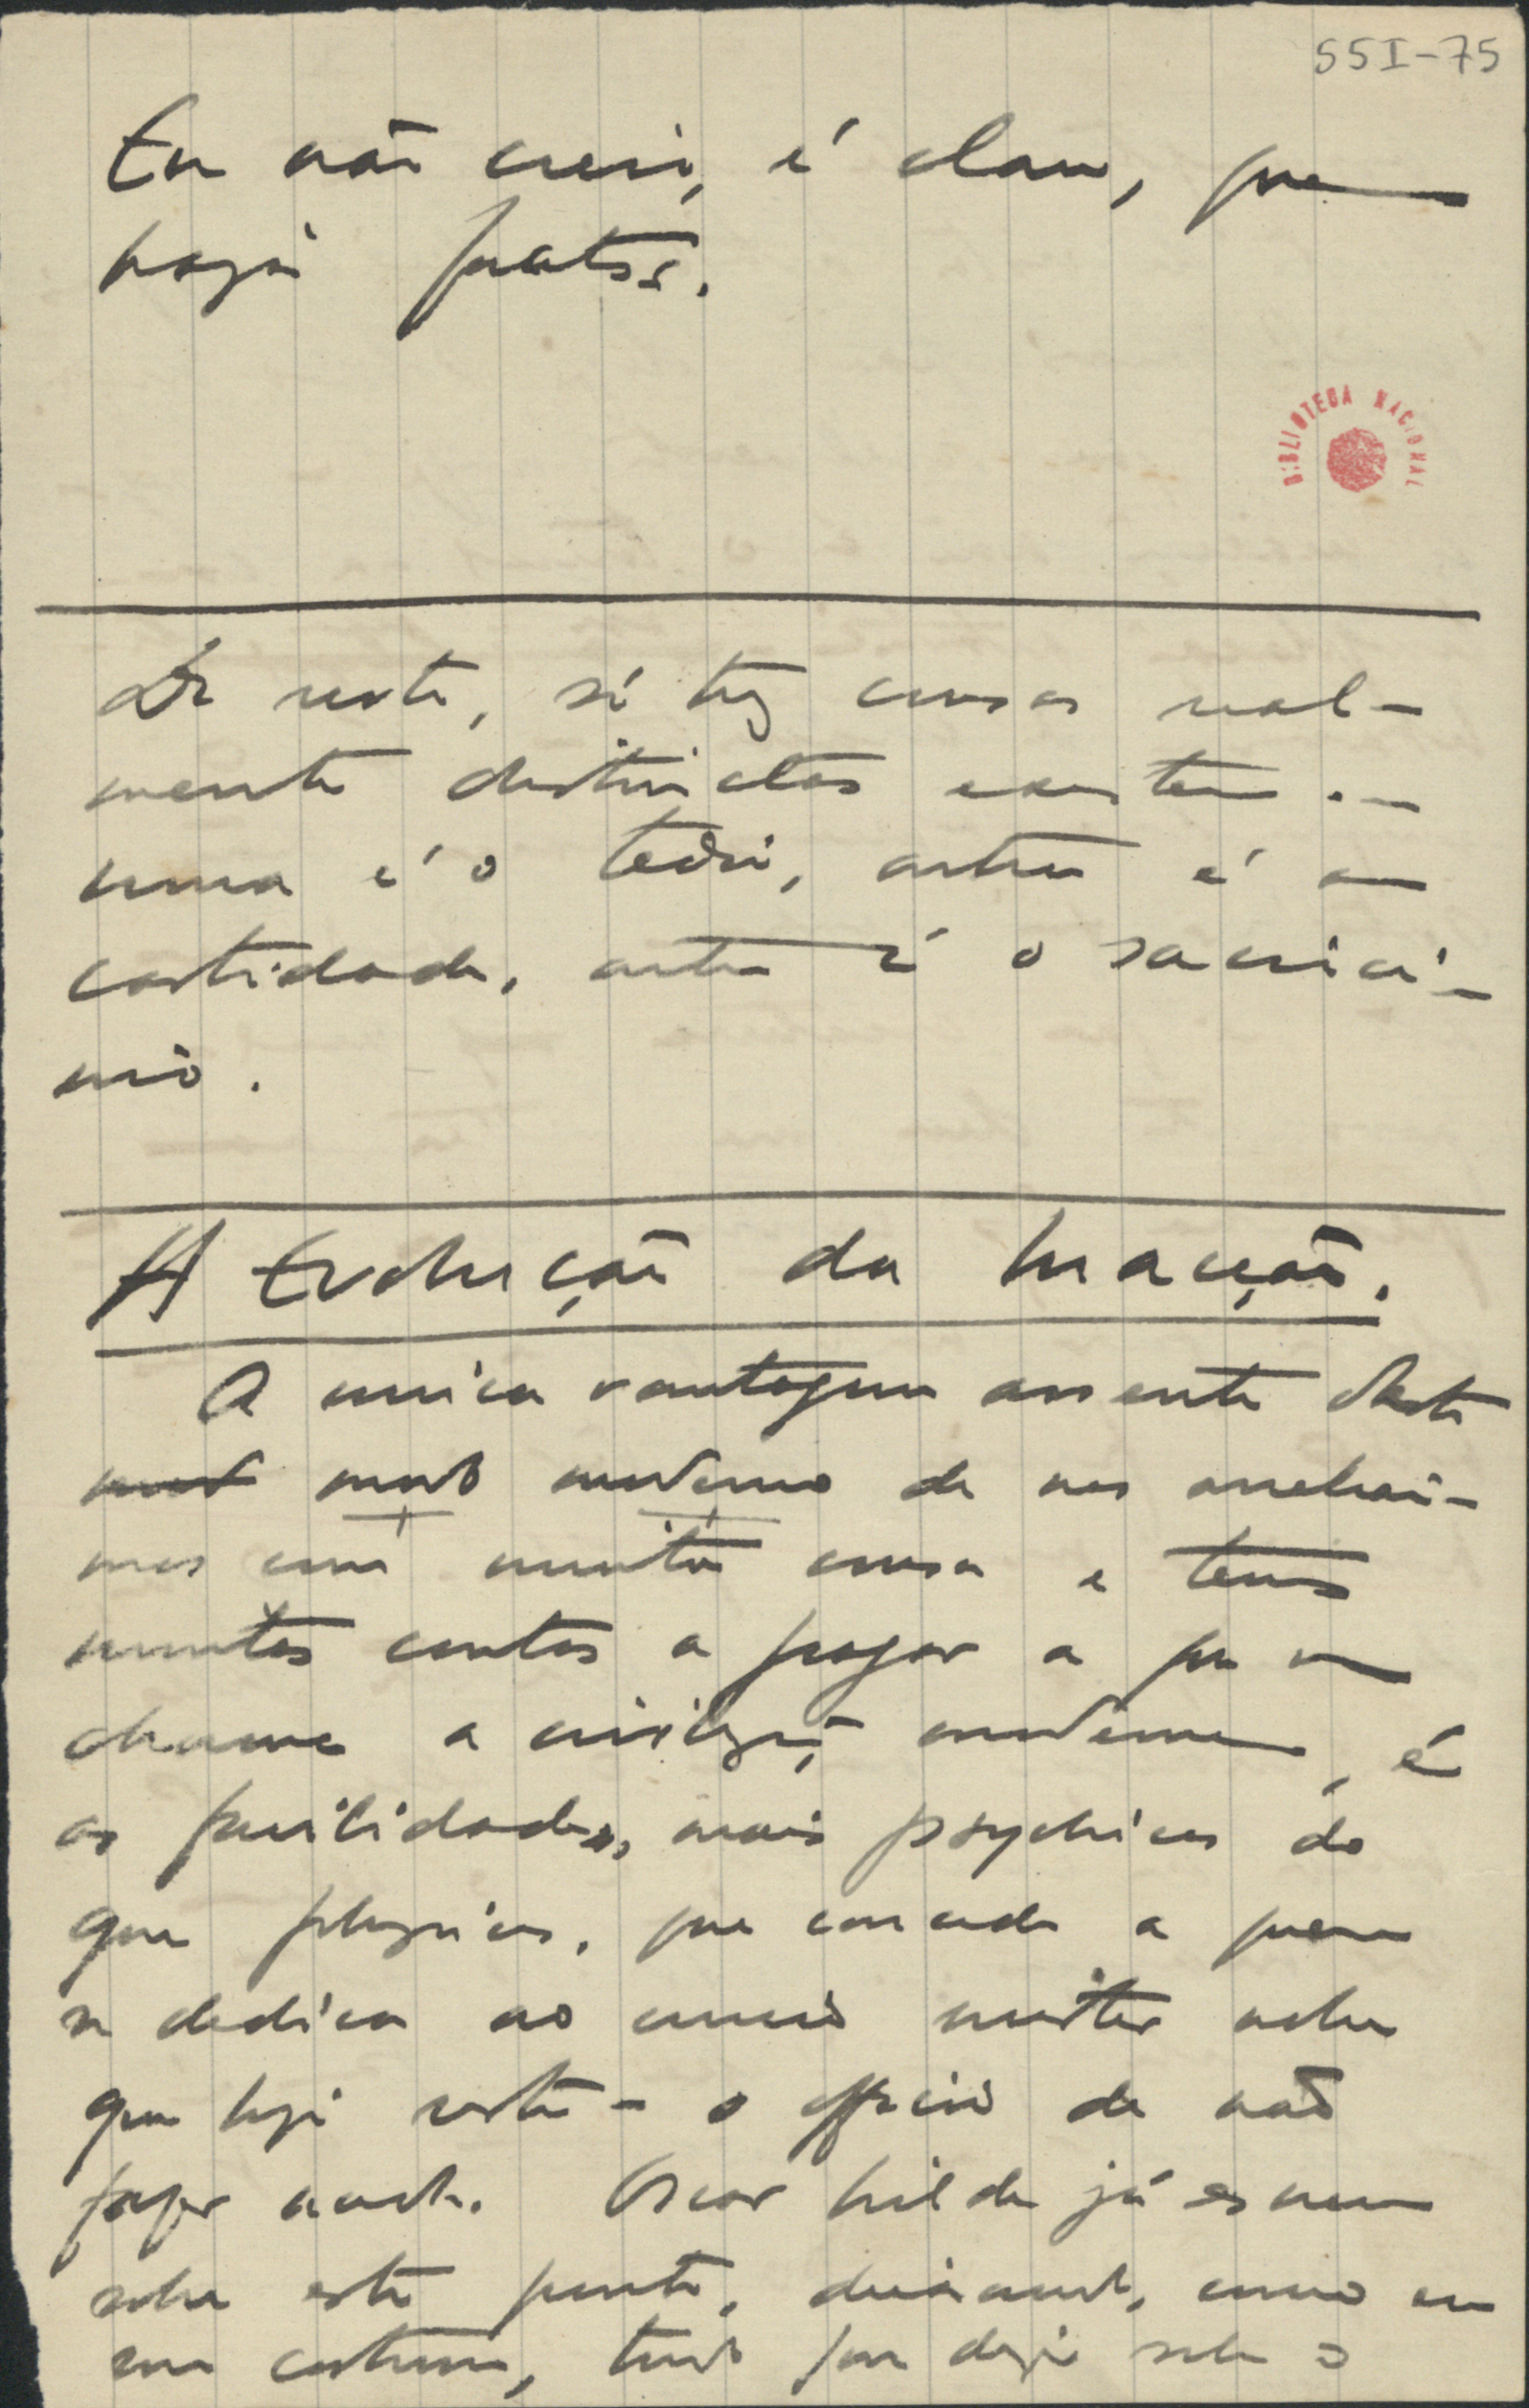 55I-75
Eu não creio, é claro, que
haja factos.
BIBLIOTECA NACIONAL
De resto, só trez cousas real-
mente distinctas existem —
uma é o tedio, outra é o
outra é o
A Evolução da Inacção.
A unica vantagem assente deste
modo moderno de nos
mos com muita cousa e termos
muitas contas a pagar a que se
chama a civilização moderna, é
as facilidades, mais psychicas do
que physicas, que concede a quem
se dedica ao unico mister nobre
que hoje resta - o officio de não
fazer nada. Oscar Wilde já escreveu
sobre este ponto, deixando, como era
seu costume, tudo por dizer sobre o